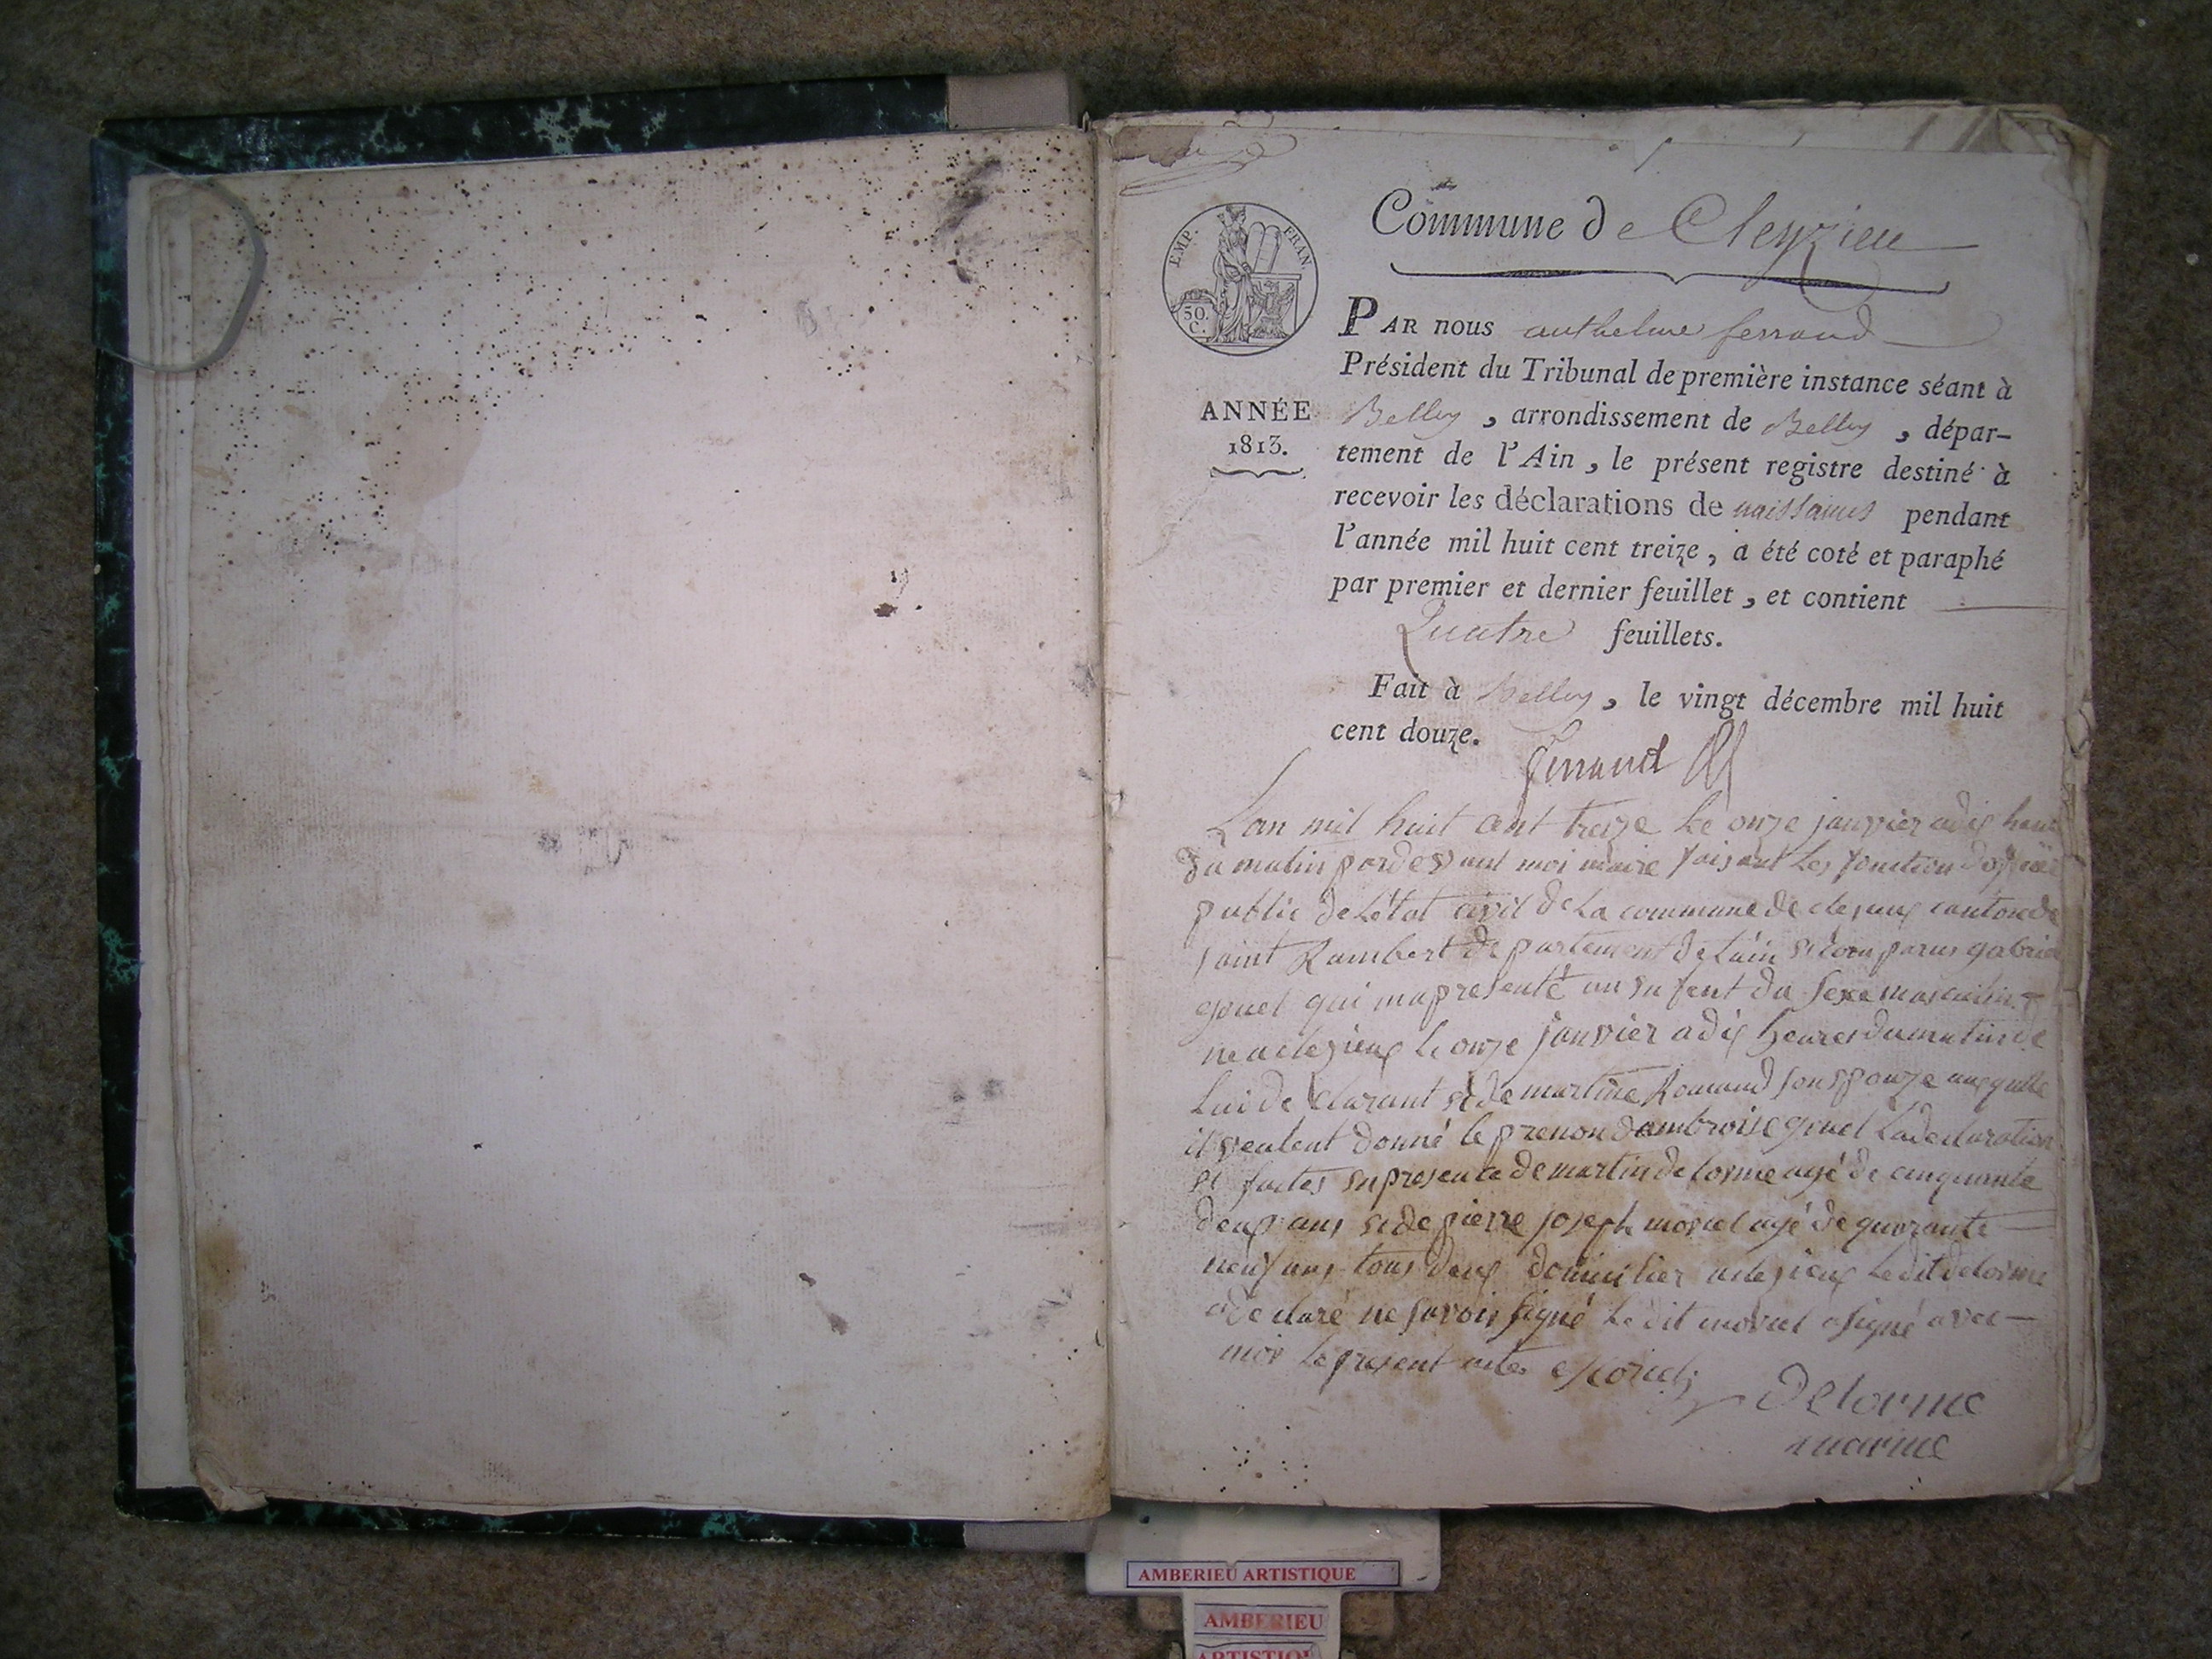 Commune de Cleyzieu
EMP. FRAN.
50.
C.
PAR nous anthelme ferrand
Président du Tribunal de première instance séant à
ANNÉE
1813.
Belley, arrondissement de Belley, dépar-
tement de l'Ain, le présent registre destiné à
recevoir les déclarations de naissances pendant
l'année mil huit cent treize, a été coté et paraphé
par premier et dernier feuillet, et contient
Quatre feuillets.
Fait à Belley, le vingt décembre mil huit
cent douze.
ferrand
L'an mil huit cent treize le onze janvier a dix heure
du matin pardevant moi maire faisant les fonction
public de letat civil de la commune de canton de
saint Rambert departement de lain et comparus gabriel
gruel qui ma presenté un enfant du sexe masculin
ne a clezieux le onze janvier a dix heures du matin de
lui declarant et de martine Romand son epouze auxquelle
il veulent donné le prenon dambroise gruel la declaration
et faites en presence de martin delorme agé de cinquante
deux ans et de pierre joseph moriel agé de quarante
neuf ans tous deux domicilier a clezieux le dit delorme
a declaré ne savoir signé le dit moriel a signé avec
moi le present actes Moriel
Delorme
maire
AMBERIEU ARTISTIQUE
AMBERIEU